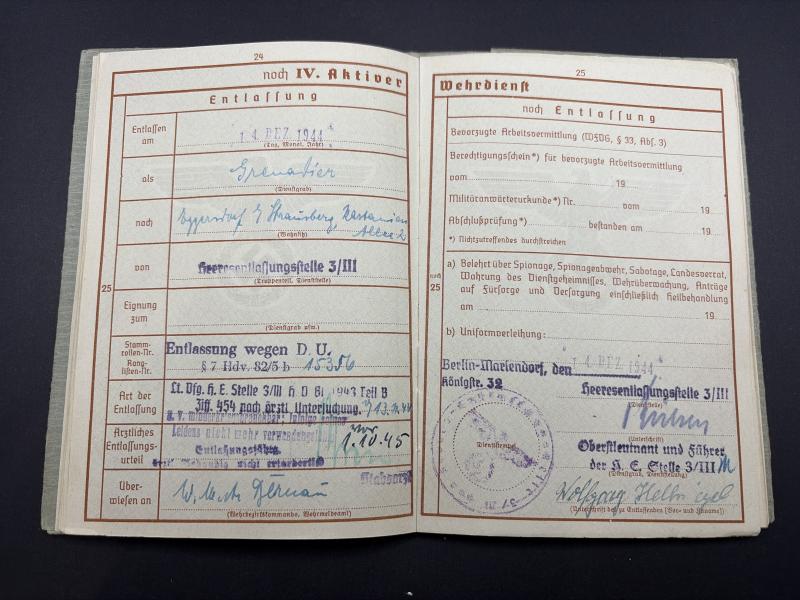 24
noch IV. Aktiver
Entlassung
Entlassen am
14. DEZ. 1944
(Tag, Monat, Jahr)
als
Grenadier
(Dienstgrad)
nach
Eggersdorf Strausberg, Kastanien
Allee 2
(Wohnsitz)
von
Heeresentlassungsstelle 3/III
(Truppenteil, Dienststelle)
25
Eignung zum
(Dienstgrad usw.)
Stamm-
rollen-Nr.
Rang-
listen-Nr.
Entlassung wegen D. U.
§ 7 Hdv. 82/5 b 15356
Art der Entlassung
Lt. Vfg. H. E. Stelle 3/III 1943 Teil B
Ziff. 454 nach ärztl. Untersuchung
Ärztliches Entlassungs-
urteil
Leidens nicht mehr
vor
1.10.45
nicht erforderlich
Stabsarzt
Über-
wiesen an
(Wehrbezirkskommando, Wehrmeldeamt)
25
Wehrdienst
noch Entlassung
Bevorzugte Arbeitsvermittlung (WFVG, § 33, Abs. 3)
Berechtigungsschein*) für bevorzugte Arbeitsvermittlung
vom 19
Militäranwärterurkunde*) Nr. vom 19
Abschlußprüfung*) bestanden am 19
*) Nichtzutreffendes durchstreichen
noch
25
a) Belehrt über Spionage, Spionageabwehr, Sabotage, Landesverrat,
Wahrung des Dienstgeheimnisses, Wehrüberwachung, Anträge
auf Fürsorge und Versorgung einschließlich Heilbehandlung
am 19
b) Uniformverleihung:
Berlin-Mariendorf, den 14. DEZ. 1944
Königstr. 32
Heeresentlassungsstelle 3/III
(Dienststelle)
Dienststempel
(Unterschrift)
Oberstleutnant und Führer
der H. E. Stelle 3/III
(Dienstgrad, Dienststellung)
Wolfgang
(Unterschrift des zu Entlassenden [Vor- und Zuname])